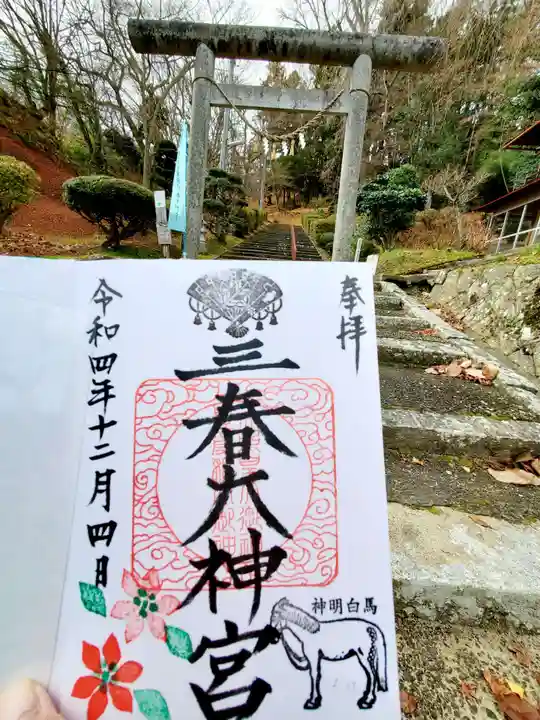 奉拝
三春大神宮
令和四年十二月四日
神明白馬